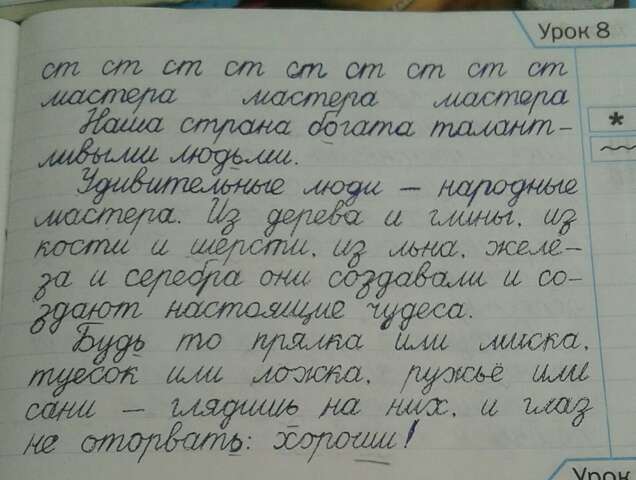 Урок 8
ст ст ст ст ст ст ст ст ст
мастера мастера мастера
Наша страна богата талант-
ливыми людьми.
Удивительные люди — народные
мастера. Из дерева и глины, из
кости и шерсти, из льна, желе-
за и серебра они создавали и со-
здают настоящие чудеса.
Будь то прялка или миска,
туесок или ложка, ружьё или
сани — глядишь на них, и глаз
не оторвать: хороши!
Урок